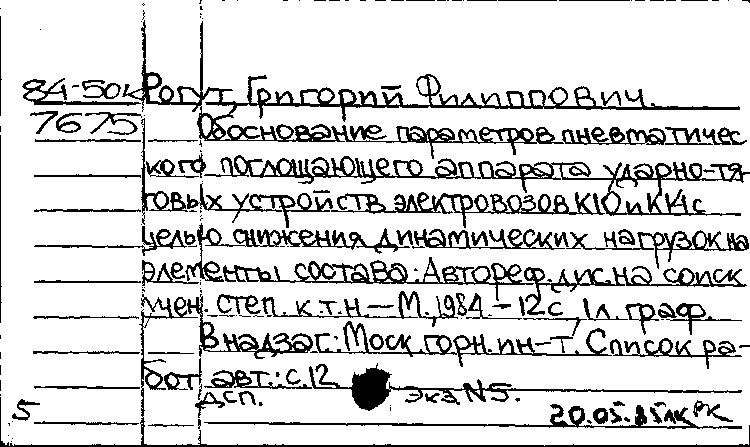 84-50к Рогут, Григорий Филиппович.
7675 Обоснование параметров пневматичес
кого поглощающего аппарата ударно-тя-
говых устройств электровозов К10 и К14 с
целью снижения динамических нагрузок на
элементы состава: Автореф. дис. на соиск
учен. степ. к.т.н. — М., 1984 - 12 с., 1 л. граф.
В надзаг.: Моск. горн. ин-т. Список ра-
бот авт.: с. 12
ДСП. экз. N5.
5 20.05.85